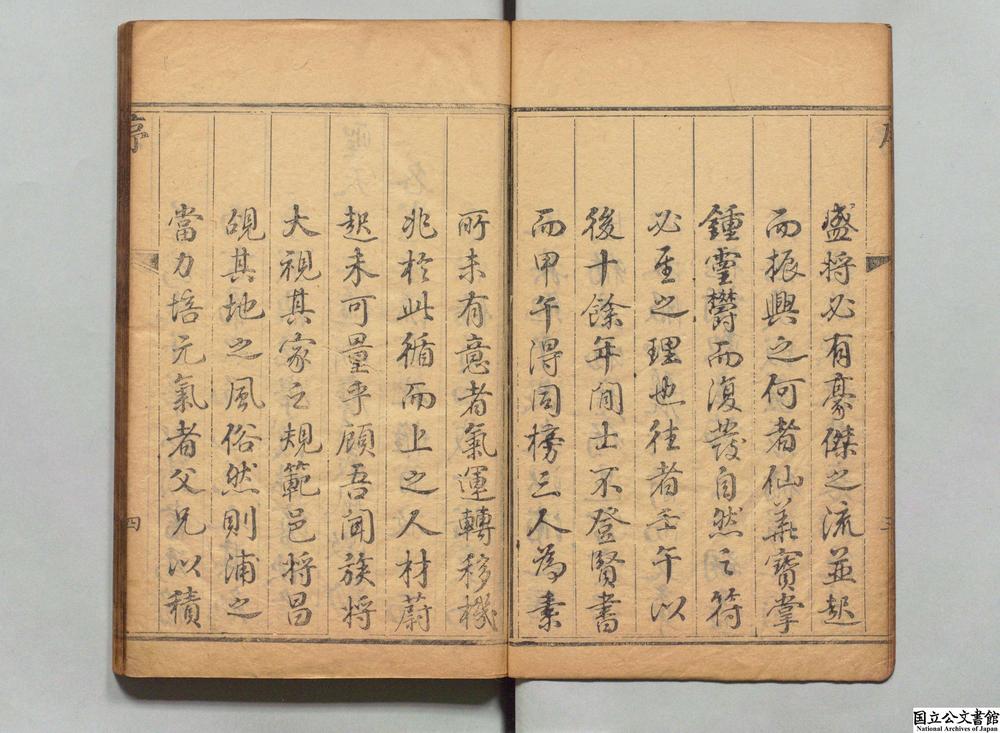 盛将必有豪傑之流並起
而振興之何者仙華寶掌
鍾靈欝而復發自然之符
必至之理也往者壬午以
後十餘年間士不登賢書
而甲午得同榜三人為素
三
所未有意者氣運轉移機
兆於此循而上之人材蔚
起未可量乎顧吾聞族将
大視其家之規範邑将昌
覘其地之風俗然則浦之
當力培元氣者父兄以積
序
四
国立公文書館
National Archives of Japan